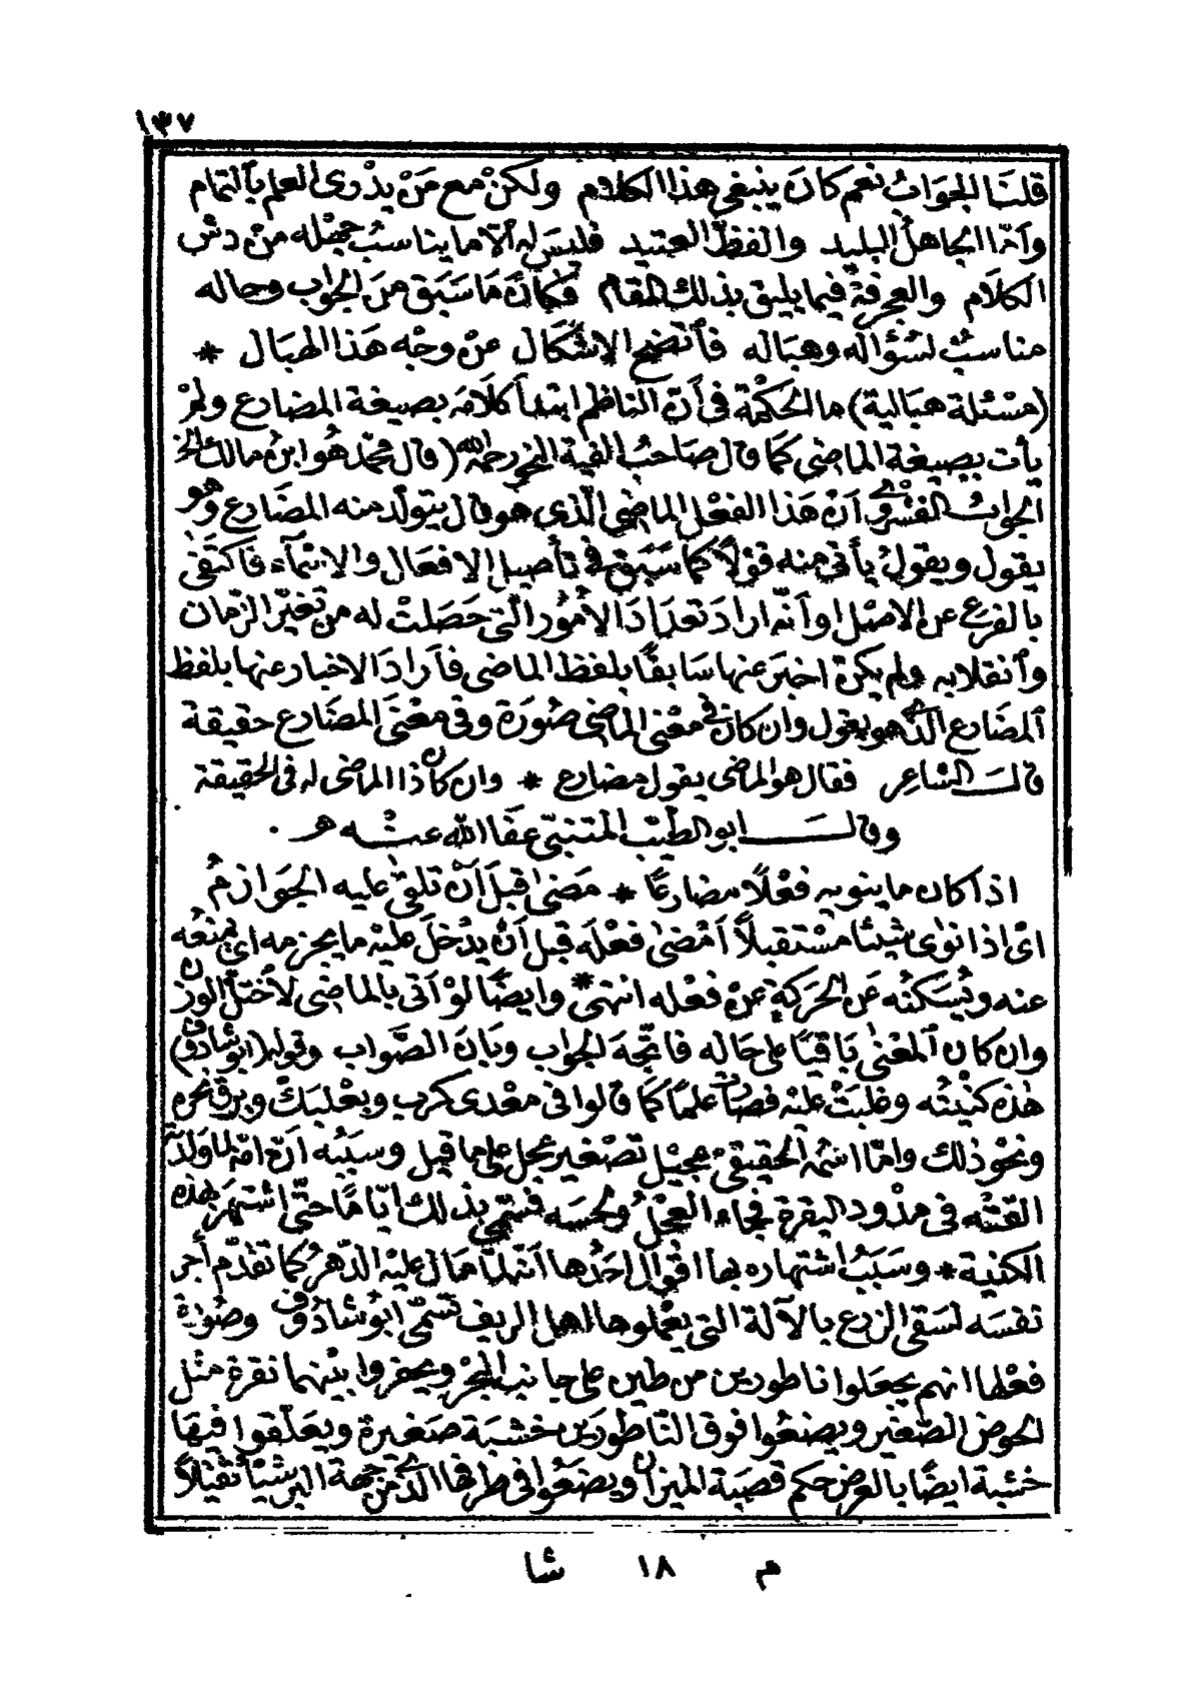 ١٣٧
قلنَا الجوَابُ نعم كانَ ينبغى هذا الكلام ولكنْ مع مَنْ يدْرى العلم بٱلتمام
وأمّا الجاهلُ البليد والفظّ العتيد فليسَ له ألّا ما يناسبُ جهْله منْ دش
الكلام والعجرفةُ فيما يليق بذلك المقام فكانَ مَا سَبَق منَ الجواب وحاله
مناسبٌ لسُؤاله وهبَاله فٱتضح الإشكال عنْ وجْه هَذا الهبَال *
(مسْئلة هبالية) ما الحكْمة فى أنّ النّاظم ابتدأ كلَامَه بصيغة المضارع ولمْ
يأت بصيغة الماضى كمَا قال صَاحبُ الفية النحو رحمه الله (قال محمّد هُوَ ابنُ مالك الخ
الجوابُ الفشروى أنّ هَذا الفعْل الماضى الّذى هو قال يتولّد منه المضَارع وهو
يقول ويقولُ يأتى منه قوْلًا كمَا سَبَق فى تأصيل الافعَال والانتمآء فاكتفَى
بالفرع عن الاصْل او أنّه اراد تعدَادَ الأمُور الّتى حَصَلتْ له من تغيّر الزّمان
وٱنقلابه ولم يكن اخبرَ عنها سَابقًا بلفظ الماضى فأرادَ الاخبار عنها بلفظ
ٱلمضَارع الّذى هو يقول وان كان فى معْنى الماضى صُورَة وفى معْنَى المضَارع حقيقة
قالـَ الشاعِر فقال هو الماضى يقول مضارع * وان كان ذا الماضى له فى الحقيقة
وقالـَ ابو الطيّب المتنبّى عفَا الله عنـه
اذا كان ما ينويه فعْلًا مضارعًا * مَضىٰ قبلَ أنْ تلقىٰ عليه الجوَازمُ
اىْ اذا نوٰى شيئا مسْتقبلًا أمْضىٰ فعْلَه قبل أنْ يدْخلَ عليْه ما يجزمه اى يمنعُه
عنه ويُسَكنُه عَن الحَركةِ عنْ فعْله انتهىٰ * وايضًا لوْ أتى بالماضى لٱختلّ الوزن
وان كان ٱلمعْنىٰ بَاقيًا على حَاله فاتّجهَ الجواب وبَانَ الصَّواب وقوله (ابو شادوف)
هٰذه كنْيتُه وغلبَتْ عليْه فصَارت علمًا كمَا قالوا فى معْدى كرب وبعْلبَكّ وبرق نحره
ونحْوُ ذلك وامّا اسْمه الحقيقى عجيْل تصْغير عجل على ما قيل وسَببُه أنّ امّه لما ولدَته
القتْه فى مذْود البقرة فجاء العجْلُ ولحسَه فسُمّى بذلك ايّامًا حتّى اشتهرَ بهٰذه
الكنية * وسَبَبُ اشتهاره بها اقوَال احَدُها أنّه لمّا مَال عليْه الدّهرُ كما تقدّم أجر
نفسَه لسَقى الزرع بالآلة التى يعْملوها اهل الريف تسَمّى ابُو شادُوف وصُورَة
فعْلها انهم يجعَلوا ناطورين من طين على جانب البحْر ويحفروا بيْنهما نقرة مثل
الحوض الصّغير ويصنعُوا فوق النّاطورَين خشبة صَغيرة ويعَلّقوا فيهَا
خشبة ايضًا بالعرض حكم قصبة الميزان ويضعُوا فى طرفها الّذى من جهة البر شيْأً ثقيلًا
م ١٨ شا